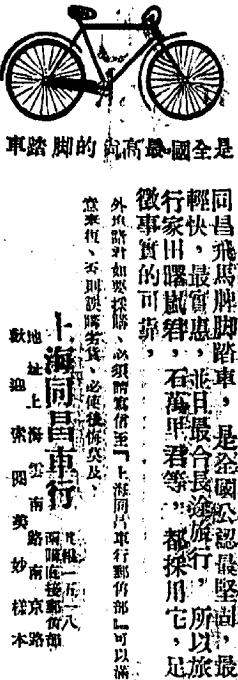 是全國最高尚的脚踏車
同昌飛馬牌脚踏車，是全國公認最堅固，最
輕快，最實惠，並且最合長途旅行，所以旅
行家田曙嵐君，石萬里君等，都採用它，足
徵事實的可靠，
外埠如要採購、必須請寫信至『上海同昌車行郵售部』可以滿
意來復、否則誤購劣貨、必使後悔莫及、
上海同昌車行
一五一八
函購直接郵售部
地址上海雲南路南京路
歡迎索閱美妙樣本